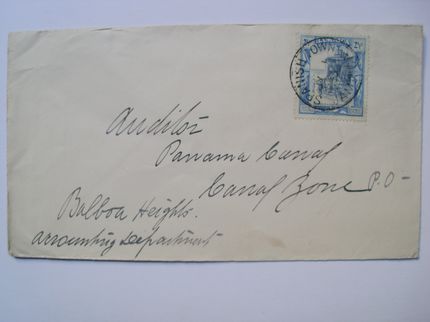 SPANISH TOWN
Auditor
Panama Canal
Canal Zone P.O-
Balboa Heights.
Accounting Department